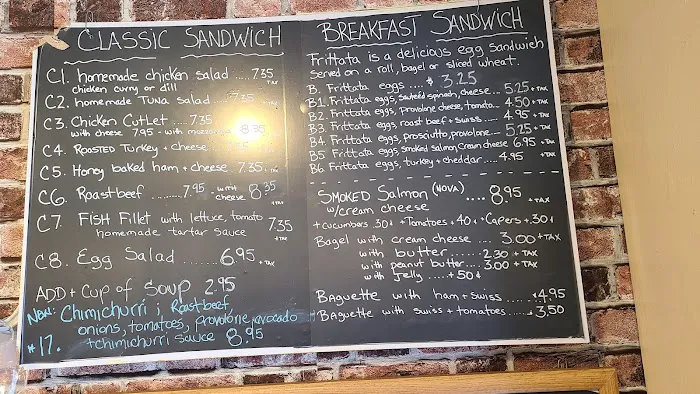 CLASSIC SANDWICH
C1. homemade chicken salad ..... 7.35
chicken curry or dill TAX
C2. homemade TUNA Salad ... 7.35
C3. Chicken CutLet ..... 7.35
with cheese 7.95 - with mozzarella 8.35
C4. ROASTED Turkey + cheese 7.35
C5. Honey baked ham + cheese . 7.35 + TAX
C6. Roastbeef ......... 7.95 - with cheese 8.35 + TAX
C7 FISH FILLET with lettuce, tomato
homemade tartar sauce 7.35 + TAX
C8. Egg Salad ....... 6.95 + TAX
ADD + Cup of Soup 2.95
New: Chimichurri ; Roastbeef,
onions, tomatoes, provolone, avocado
#17. + chimichurri sauce 8.95
BREAKFAST SANDWICH
Frittata is a delicious egg sandwich
served on a roll, bagel or sliced wheat.
B. Frittata eggs .... $ 3.25
B1. Frittata eggs, sauteéd spinach, cheese ... 5.25 + TAX
B2. Frittata eggs, provolone cheese, tomato.. 4.50 + TAX
B3 Frittata eggs, roast beef + swiss .... 4.95 + TAX
B4 Frittata eggs, Prosciutto, provolone... 5.25 + TAX
B5 Frittata eggs, Smoked salmon, Cream cheese 6.95 + TAX
B6 Frittata eggs, turkey + cheddar ..... 4.95 + TAX
SMOKED Salmon (NOVA) .... 8.95 + TAX
w/cream cheese
+ cucumbers .30¢ + Tomatoes + 40¢ + Capers + .30¢
Bagel with cream cheese ... 3.00 + TAX
with butter ....... 2.30 + TAX
with peanut butter ... 3.00 + TAX
with Jelly .... + 50¢
Baguette with ham + swiss ...... $4.95
Baguette with swiss + tomatoes ..... $3.50